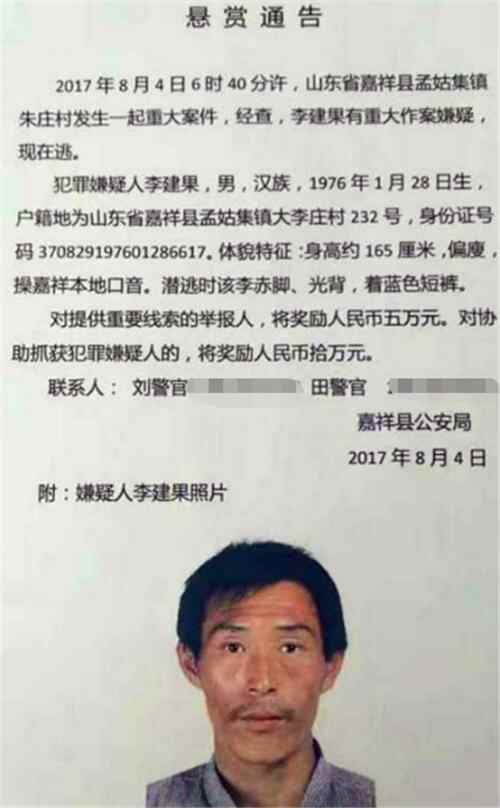 悬赏通告
2017年8月4日6时40分许，山东省嘉祥县孟姑集镇
朱庄村发生一起重大案件，经查，李建果有重大作案嫌疑，
现在逃。
犯罪嫌疑人李建果，男，汉族，1976年1月28日生，
户籍地为山东省嘉祥县孟姑集镇大李庄村232号，身份证号
码370829197601286617。体貌特征：身高约165厘米，偏瘦，
操嘉祥本地口音。潜逃时该李赤脚、光背，着蓝色短裤。
对提供重要线索的举报人，将奖励人民币五万元。对协
助抓获犯罪嫌疑人的，将奖励人民币拾万元。
联系人：刘警官 田警官
嘉祥县公安局
2017年8月4日
附：嫌疑人李建果照片